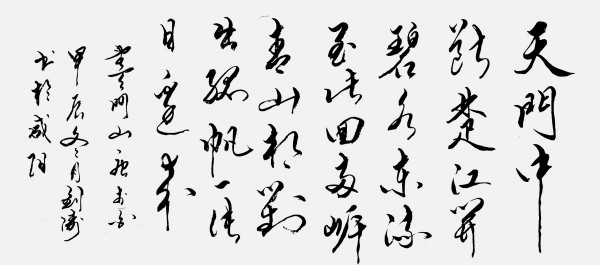 天門中
斷楚江開
碧水東流
至此回兩岸
青山相對
出孤帆一片
日邊來
望天門山
甲辰 月劉
書於咸陽